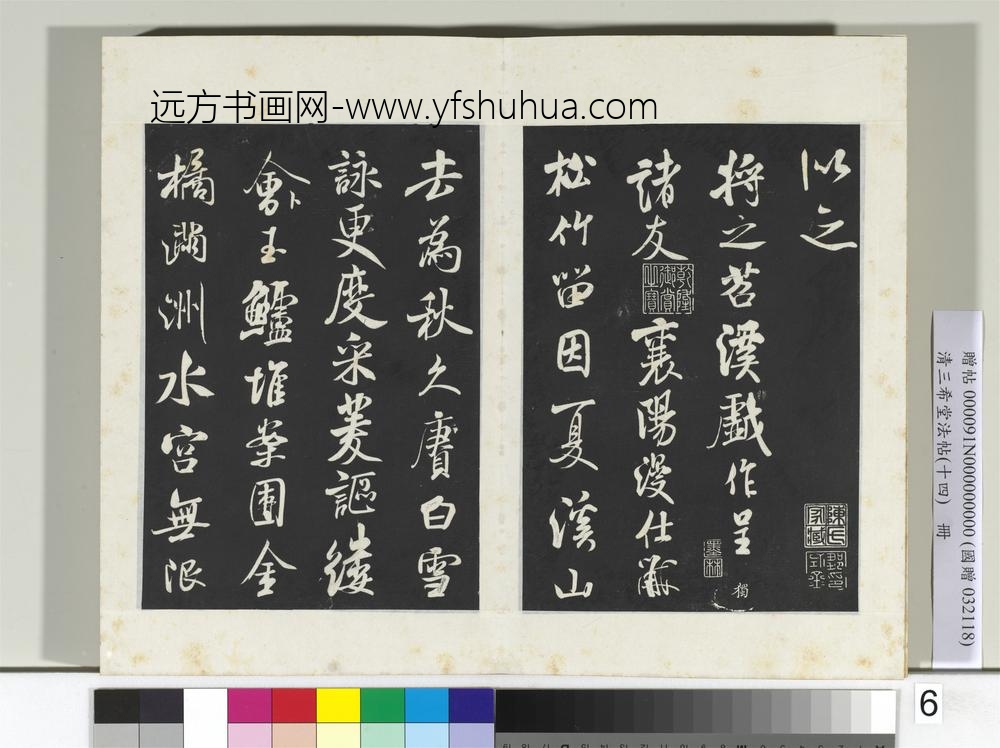 远方书画网-www.yfshuhua.com
似之
将之苕溪戲作呈
諸友襄陽漫仕黻
松竹留因夏溪山
去為秋久賡白雪
詠更度采菱謳縷
會玉鱸堆案團金
橘滿洲水宮無限
乾隆
御賞
之寶
墨林
獨
贈帖 000091N000000000 (國贈 032118)
清三希堂法帖(十四) 冊
6